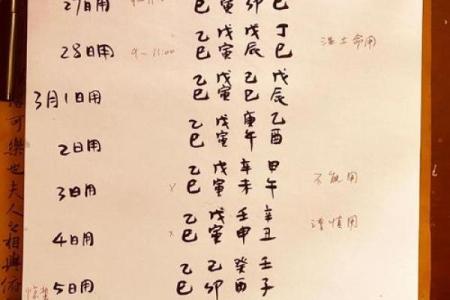 27日用 乙 戊 己 乙
巳 寅 卯 巳
28日用 9-11:00 乙 戊 戊 丁
巳 寅 辰 巳 濕土命用
3月1日用 乙 戊 己 戊
巳 寅 巳 辰
2日用 乙 戊 庚 乙
巳 寅 午 酉
3日用 x 乙 戊 辛 甲
巳 寅 未 午 不能用
4日用 x 乙 戊 壬 辛
巳 寅 申 丑 謹慎用
5日用 乙 己 癸 壬
巳 卯 酉 子
可樂也夫人之相與俯